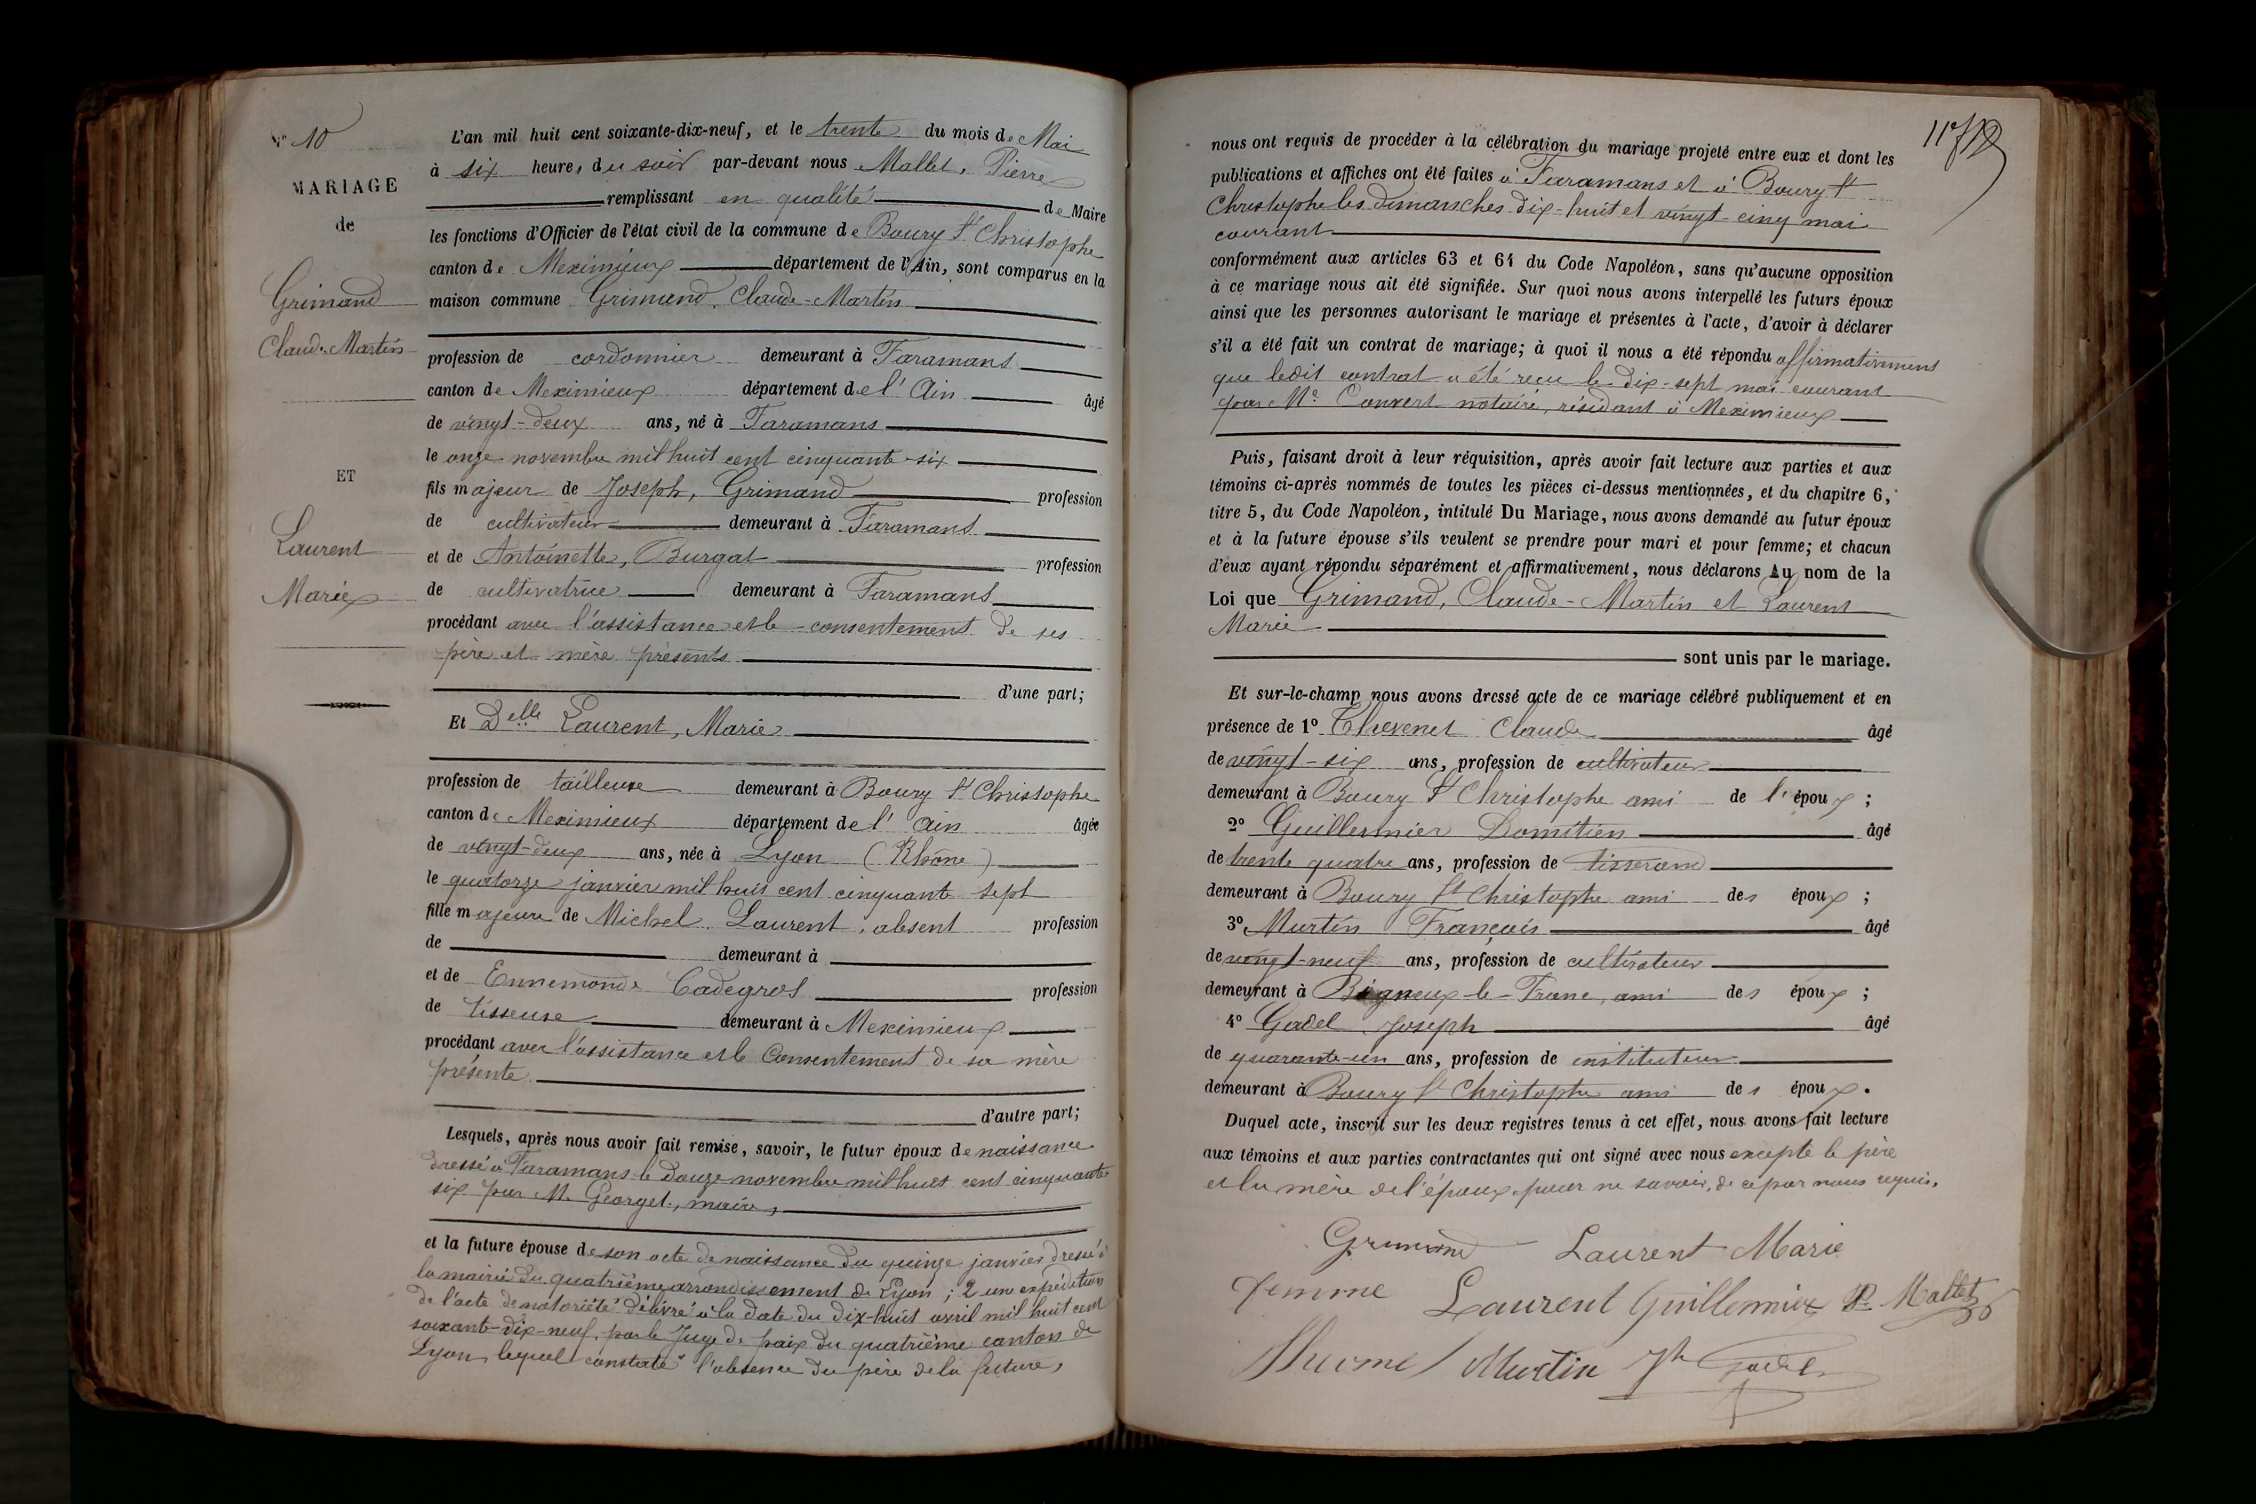 N° 10
MARIAGE
de
Grimand
Claude-Martin
ET
Laurent
Marie
L'an mil huit cent soixante-dix-neuf, et le trente du mois de Mai
à six heures du soir par-devant nous Mallet, Pierre
remplissant en qualité de Maire
les fonctions d'Officier de l'état civil de la commune de Bourg St Christophe
canton de Meximieux département de l'Ain, sont comparus en la
maison commune Grimand, Claude-Martin
profession de cordonnier demeurant à Faramans
canton de Meximieux département de l'Ain âgé
de vingt-deux ans, né à Faramans
le onze novembre mil huit cent cinquante-six
fils majeur de Joseph, Grimand profession
de cultivateur demeurant à Faramans
et de Antoinette, Burgat profession
de cultivatrice demeurant à Faramans
procédant avec l'assistance et le consentement de ses
père et mère présents
d'une part;
Et Delle Laurent, Marie
profession de tailleuse demeurant à Bourg St Christophe
canton de Meximieux département de l'Ain âgée
de vingt-deux ans, née à Lyon (Rhône)
le quatorze janvier mil huit cent cinquante sept
fille majeure de Michel Laurent, absent profession
de demeurant à
et de Ennemonde Cadegros profession
de tisseuse demeurant à Meximieux
procédant avec l'assistance et le consentement de sa mère
présente
d'autre part;
Lesquels, après nous avoir fait remise, savoir, le futur époux de naissance
dressé à Faramans le douze novembre mil huit cent cinquante
six par M. Georget, maire,
et la future épouse de son acte de naissance du quinze janvier dressé à
la mairie du quatrième arrondissement de Lyon; 2 une expédition
de l'acte de notoriété délivré à la date du dix-huit avril mil huit cent
soixante-dix-neuf, par le Juge de paix du quatrième canton de
Lyon lequel constate l'absence du père de la future,
nous ont requis de procéder à la célébration du mariage projeté entre eux et dont les
publications et affiches ont été faites à Faramans et à Bourg St
Christophe les dimanches dix-huit et vingt-cinq mai
courant
conformément aux articles 63 et 64 du Code Napoléon, sans qu'aucune opposition
à ce mariage nous ait été signifiée. Sur quoi nous avons interpellé les futurs époux
ainsi que les personnes autorisant le mariage et présentes à l'acte, d'avoir à déclarer
s'il a été fait un contrat de mariage; à quoi il nous a été répondu affirmativement
que ledit contrat a été reçu le dix-sept mai courant
par Me Convert notaire, résidant à Meximieux
Puis, faisant droit à leur réquisition, après avoir fait lecture aux parties et aux
témoins ci-après nommés de toutes les pièces ci-dessus mentionnées, et du chapitre 6,
titre 5, du Code Napoléon, intitulé Du Mariage, nous avons demandé au futur époux
et à la future épouse s'ils veulent se prendre pour mari et pour femme; et chacun
d'eux ayant répondu séparément et affirmativement, nous déclarons Au nom de la
Loi que Grimand, Claude-Martin et Laurent
Marie
sont unis par le mariage.
Et sur-le-champ nous avons dressé acte de ce mariage célébré publiquement et en
présence de 1° Thevenet Claude âgé
de vingt-six ans, profession de cultivateur
demeurant à Bourg St Christophe ami de l'époux;
2° Guillermier Domitien âgé
de trente quatre ans, profession de tisserand
demeurant à Bourg St Christophe ami des époux;
3° Murtin François âgé
de vingt-neuf ans, profession de cultivateur
demeurant à Bigneux-le-Franc, ami des époux;
4° Gadel Joseph âgé
de quarante-un ans, profession de instituteur
demeurant à Bourg St Christophe ami des époux.
Duquel acte, inscrit sur les deux registres tenus à cet effet, nous avons fait lecture
aux témoins et aux parties contractantes qui ont signé avec nous excepté le père
et la mère de l'époux, pour ne savoir, de ce par nous requis.
Grimand Laurent Marie
femme Laurent Guillermier P. Mallet
Murtin Jh Gadel